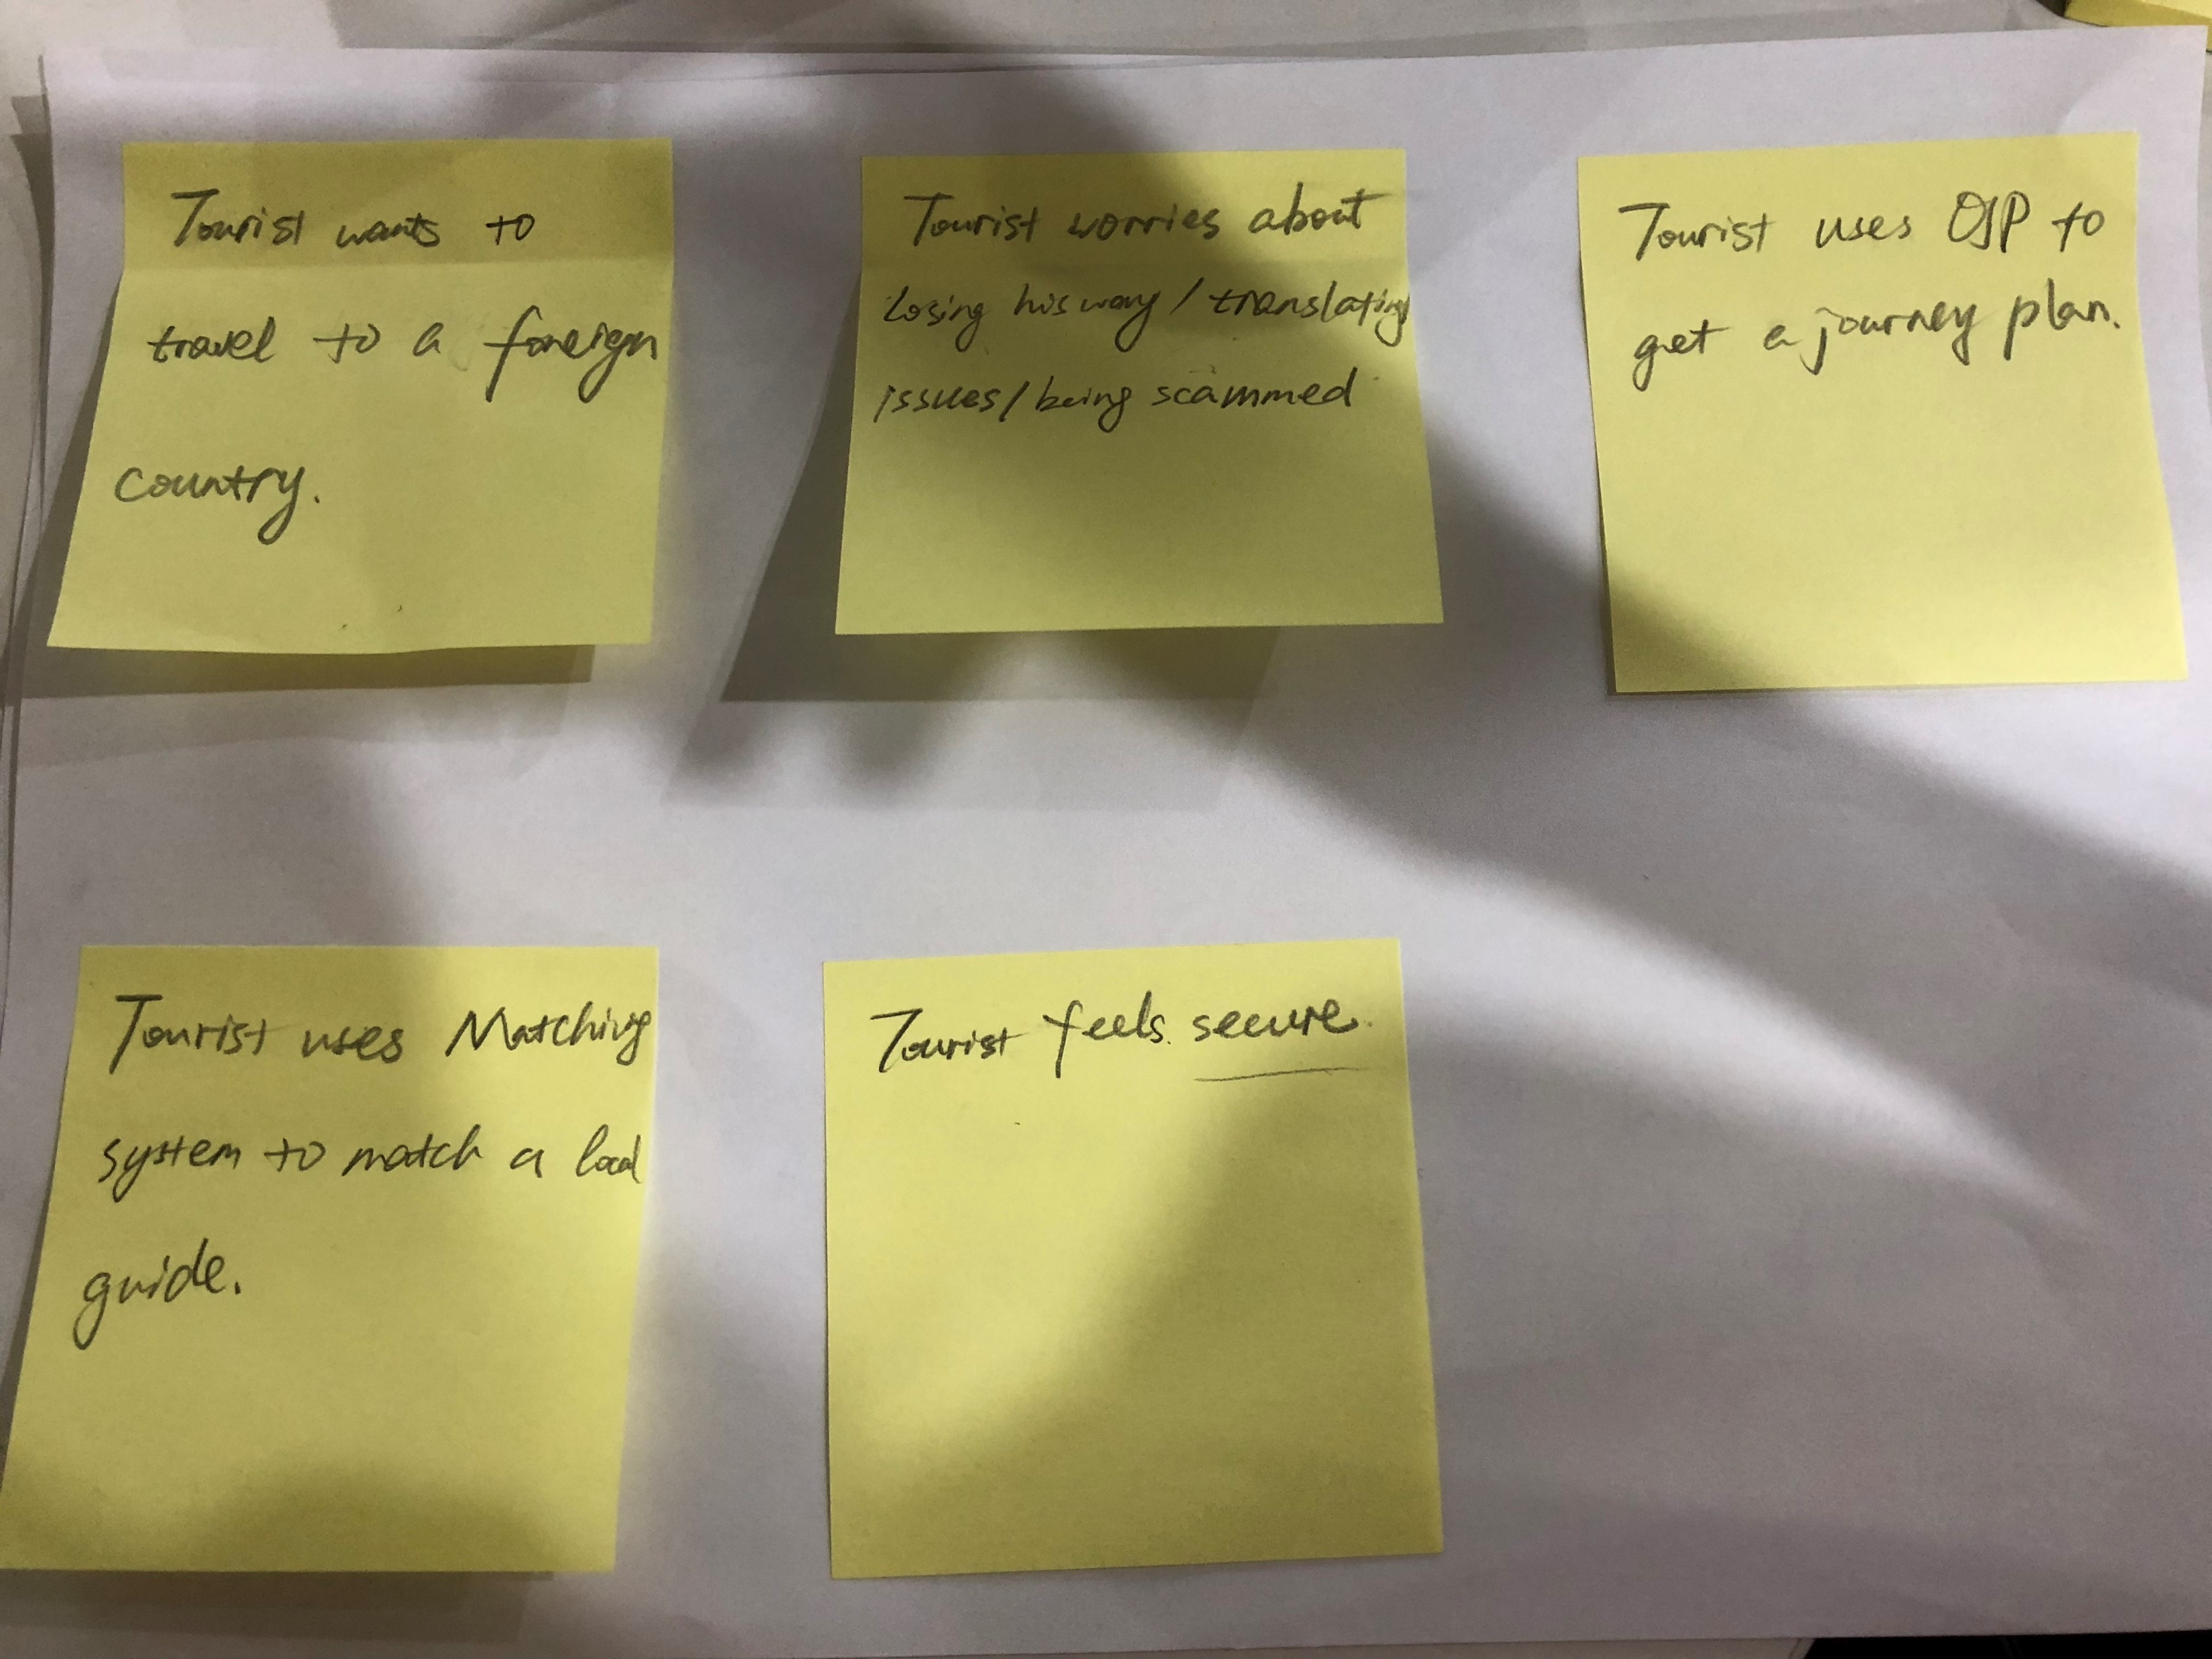 Tourist wants to
travel to a foreign
country.
Tourist worries about
losing his way / translating
issues / being scammed
Tourist uses OJP to
get a journey plan.
Tourist uses Matching
system to match a local
guide.
Tourist feels secure.